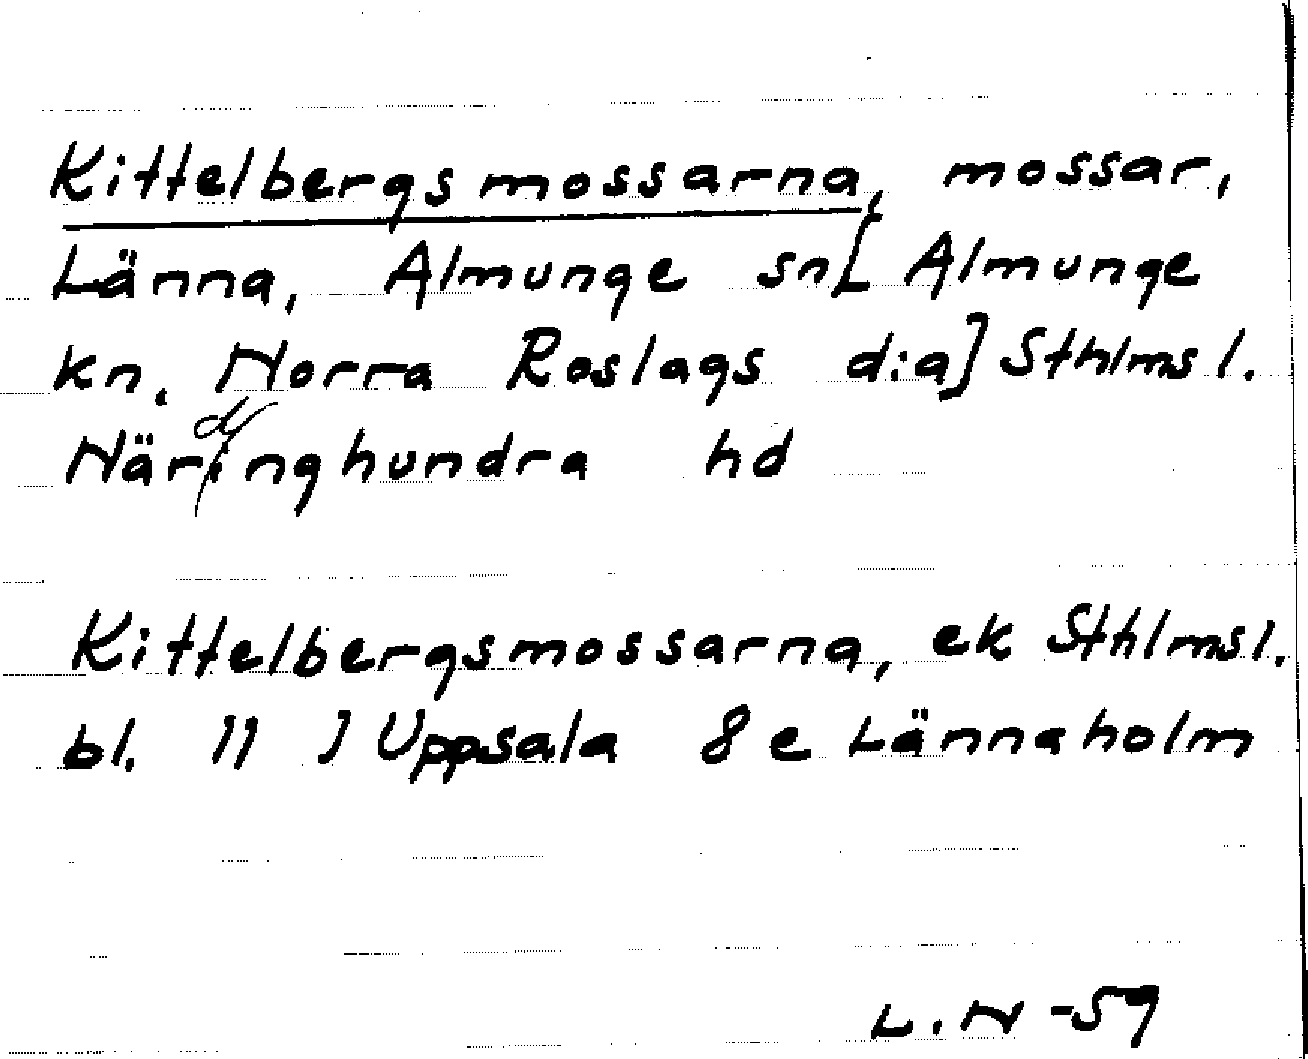 Kittelbergsmossarna, mossar,
Länna, Almunge sn [Almunge
kn, Norra Roslags d:a] Sthlms l.
Närdinghundra hd
Kittelbergsmossarna, ek Sthlms l.
bl. 11 J Uppsala 8e Lännaholm
L.N -59